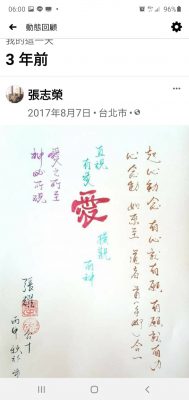 06:00 96%
動態回顧
我的這一天
3 年前
張志榮
2017年8月7日 · 台北市
起心動念 有心就有願 有願就有力
心念動 如來至 道者 合一
直視有愛
愛
橫觀兩神
愛之所至
神必所現
張
丙申 秋於